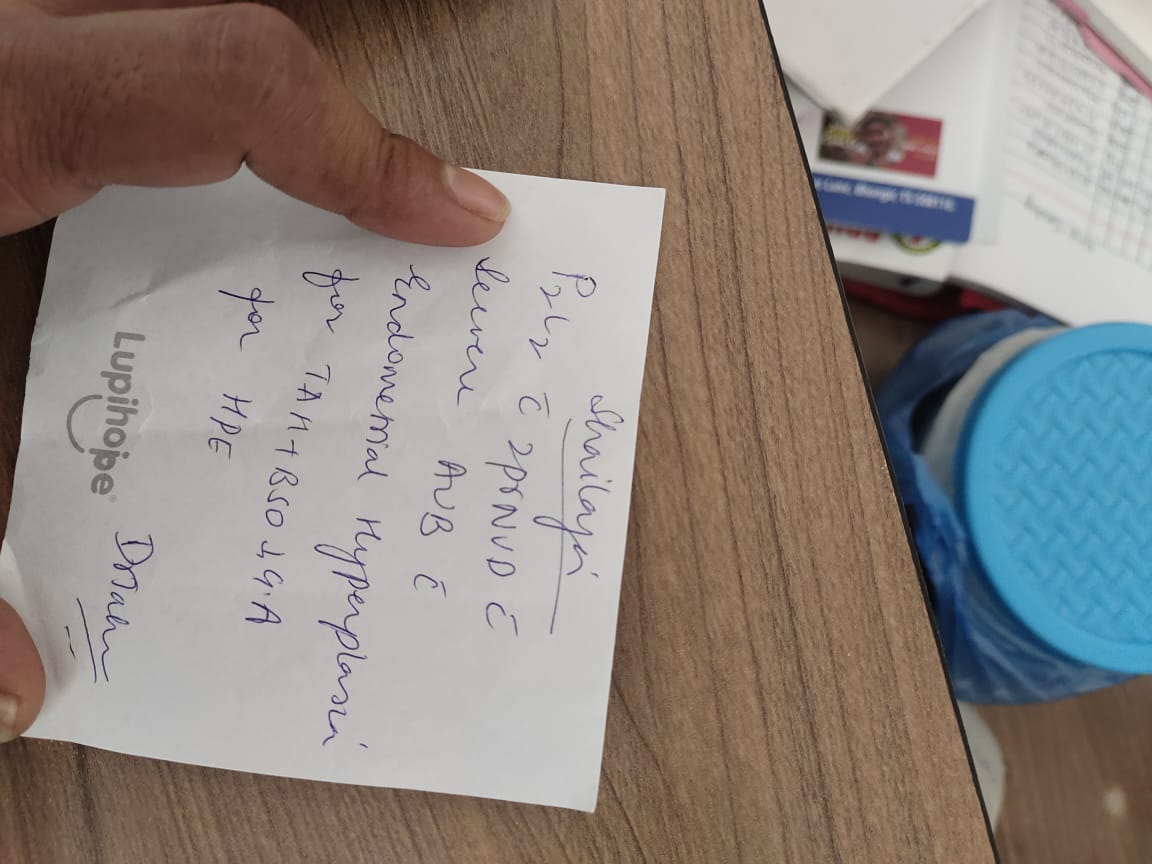 Shailaja
P2L2 c̄ 2prNVD c̄
Severe AUB c̄
Endometrial Hyperplasia
for TAH+BSO ↓ G.A
for HPE
Lupihope